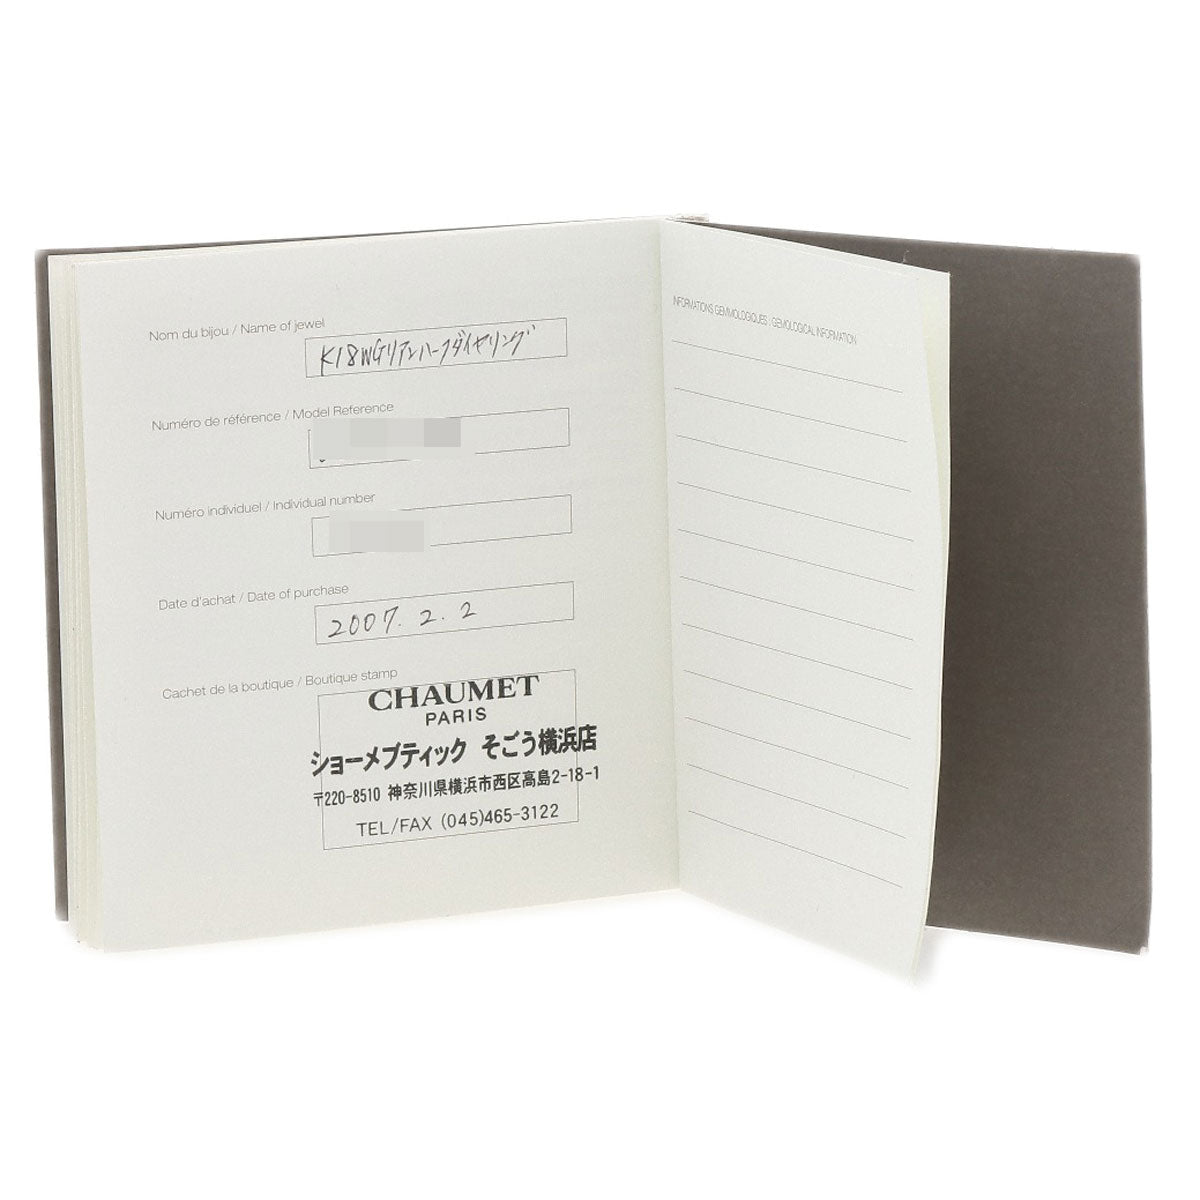 Nom du bijou / Name of jewel
K18WGリアンハーフダイヤリング
Numéro de référence / Model Reference
Numéro individuel / Individual number
Date d'achat / Date of purchase
2007. 2. 2
Cachet de la boutique / Boutique stamp
CHAUMET
PARIS
ショーメブティック そごう横浜店
〒220-8510 神奈川県横浜市西区高島2-18-1
TEL/FAX (045)465-3122
INFORMATIONS GEMMOLOGIQUES / GEMOLOGICAL INFORMATION